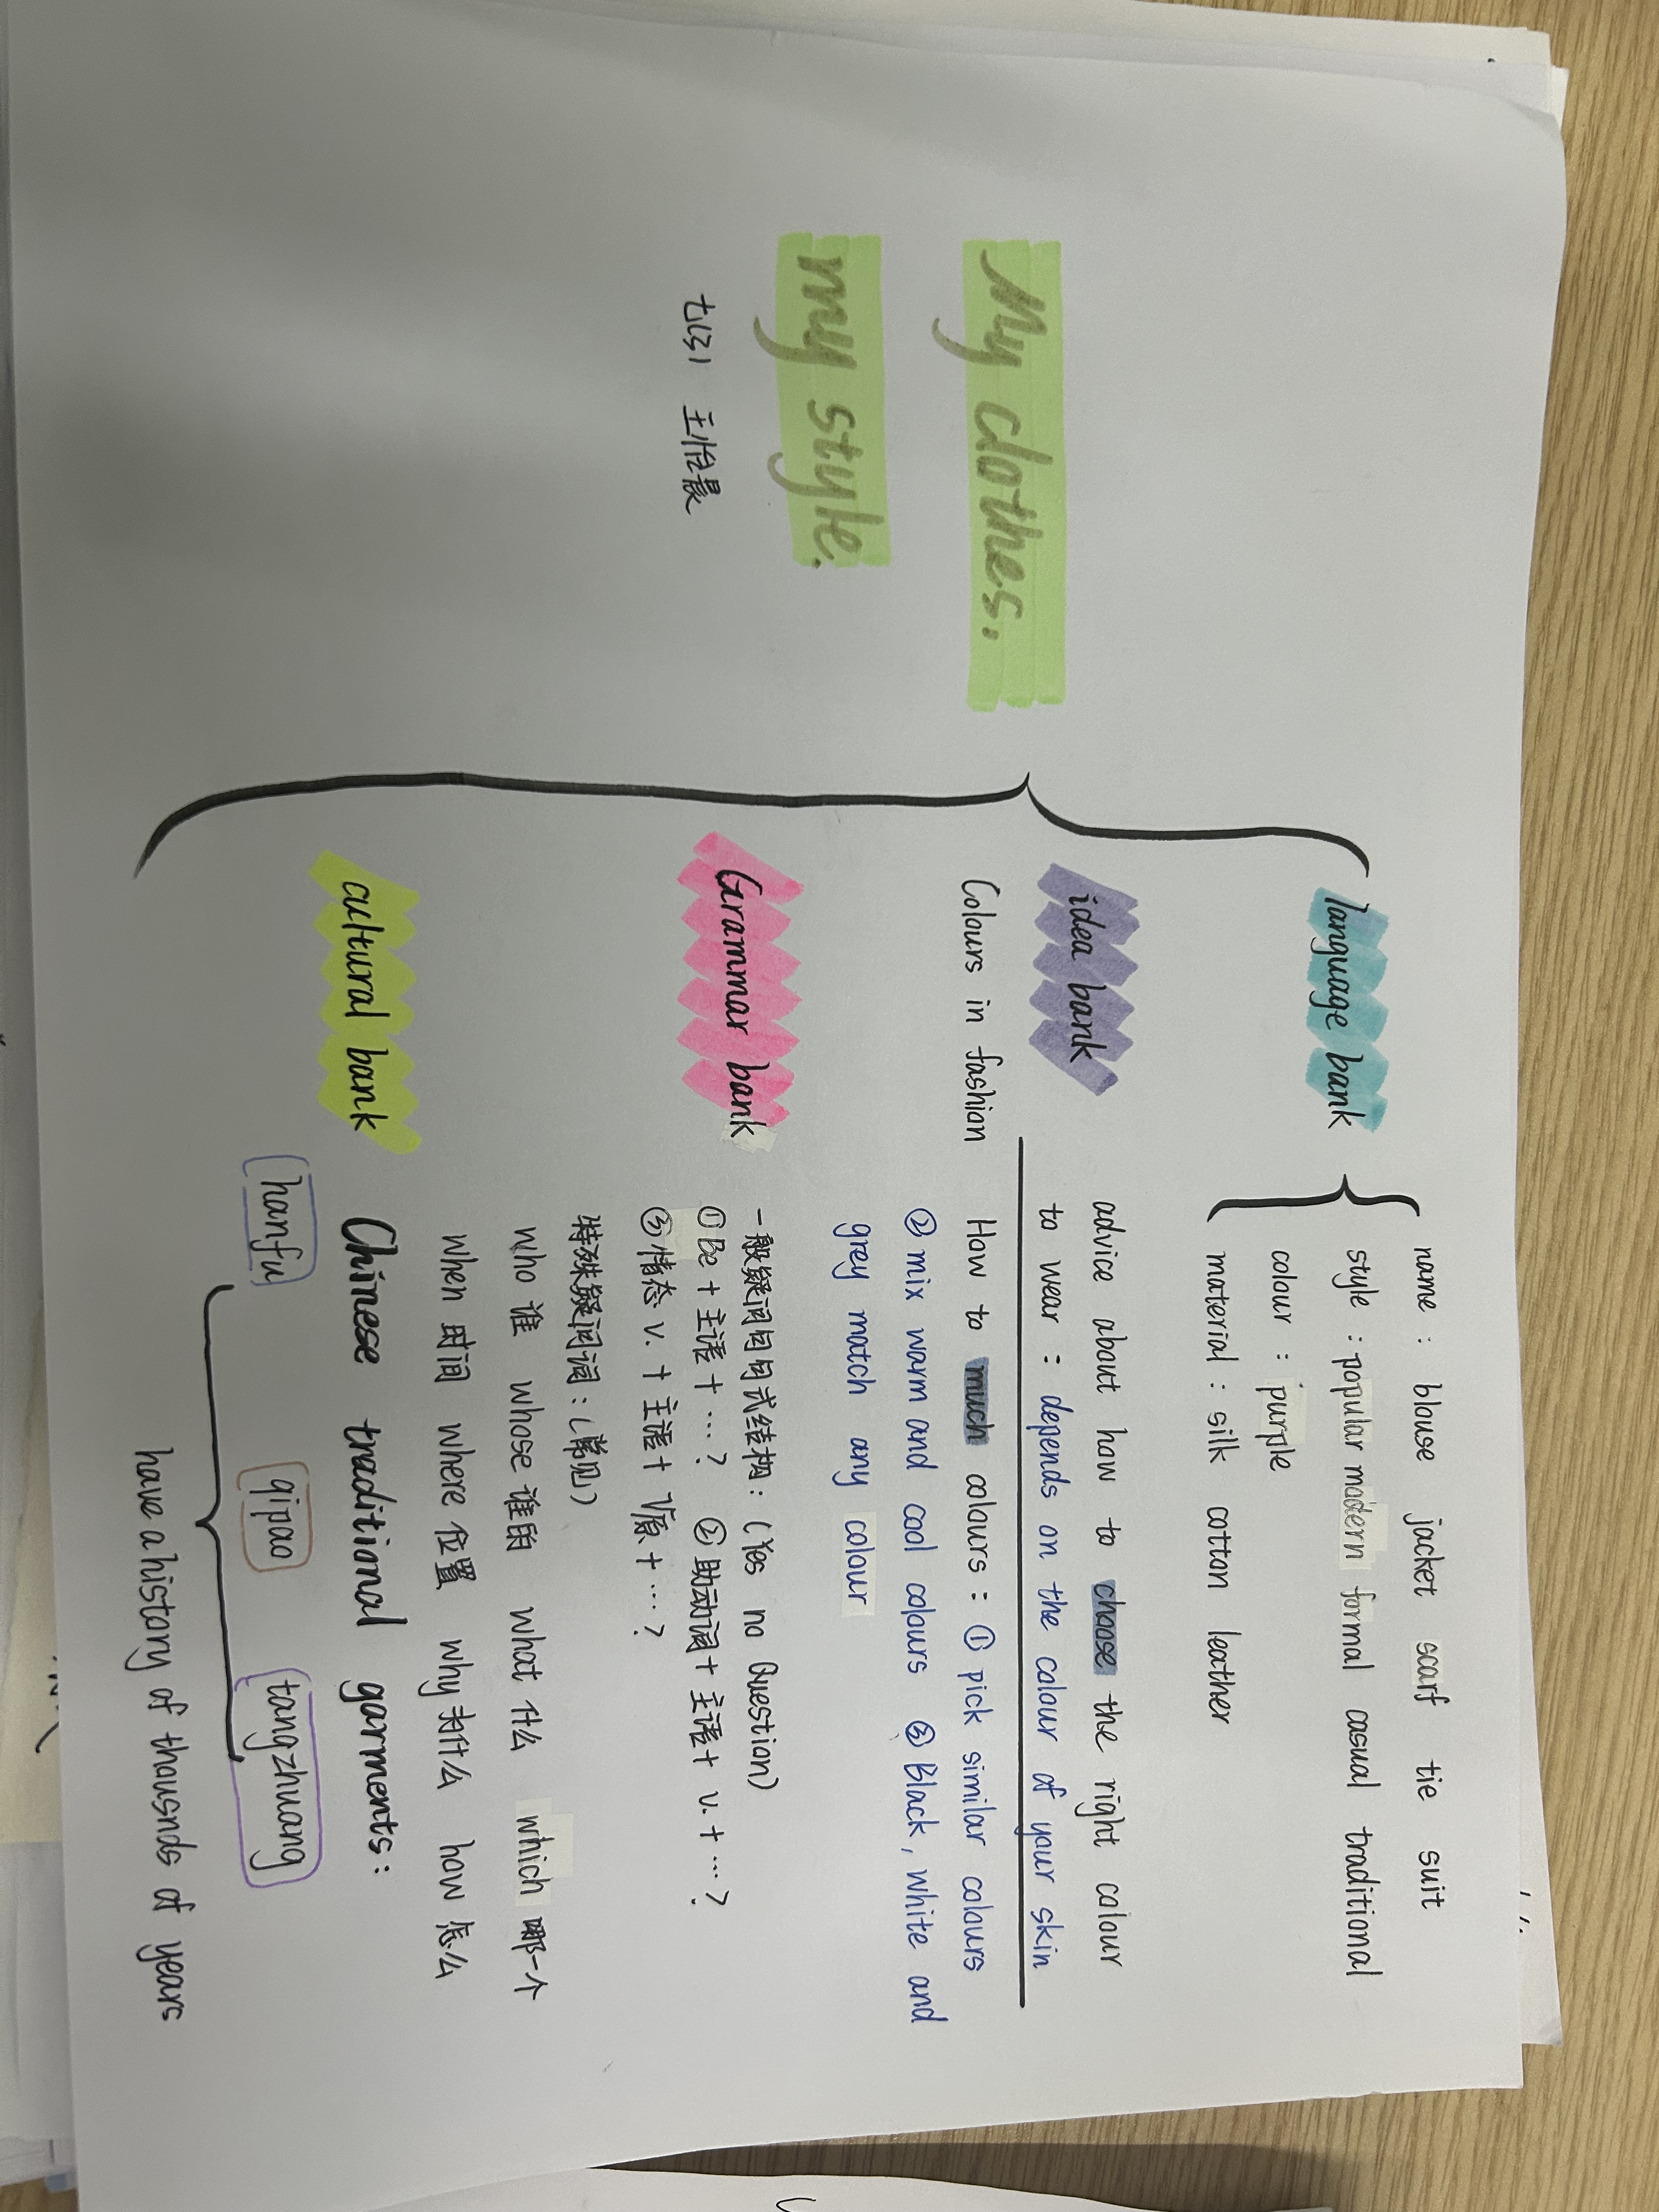 My clothes.
my style.
七(3) 王怡晨
language bank
name : blouse jacket scarf tie suit
style : popular modern formal casual traditional
colour : purple
material : silk cotton leather
idea bank
Colours in fashion
advice about how to choose the right colour
to wear : depends on the colour of your skin
How to much colours : ① pick similar colours
② mix warm and cool colours ③ Black, white and
grey match any colour
Grammar bank
一般疑问句句式结构: (Yes no Question)
① Be + 主语 + …? ② 助动词 + 主语 + v. + …?
③ 情态 v. + 主语 + V原 + …?
特殊疑问词: (常见)
who 谁 whose 谁的 what 什么 which 哪一个
when 时间 where 位置 why 为什么 how 怎么
cultural bank
Chinese traditional garments:
hanfu qipao tangzhuang
have a history of thousnds of years